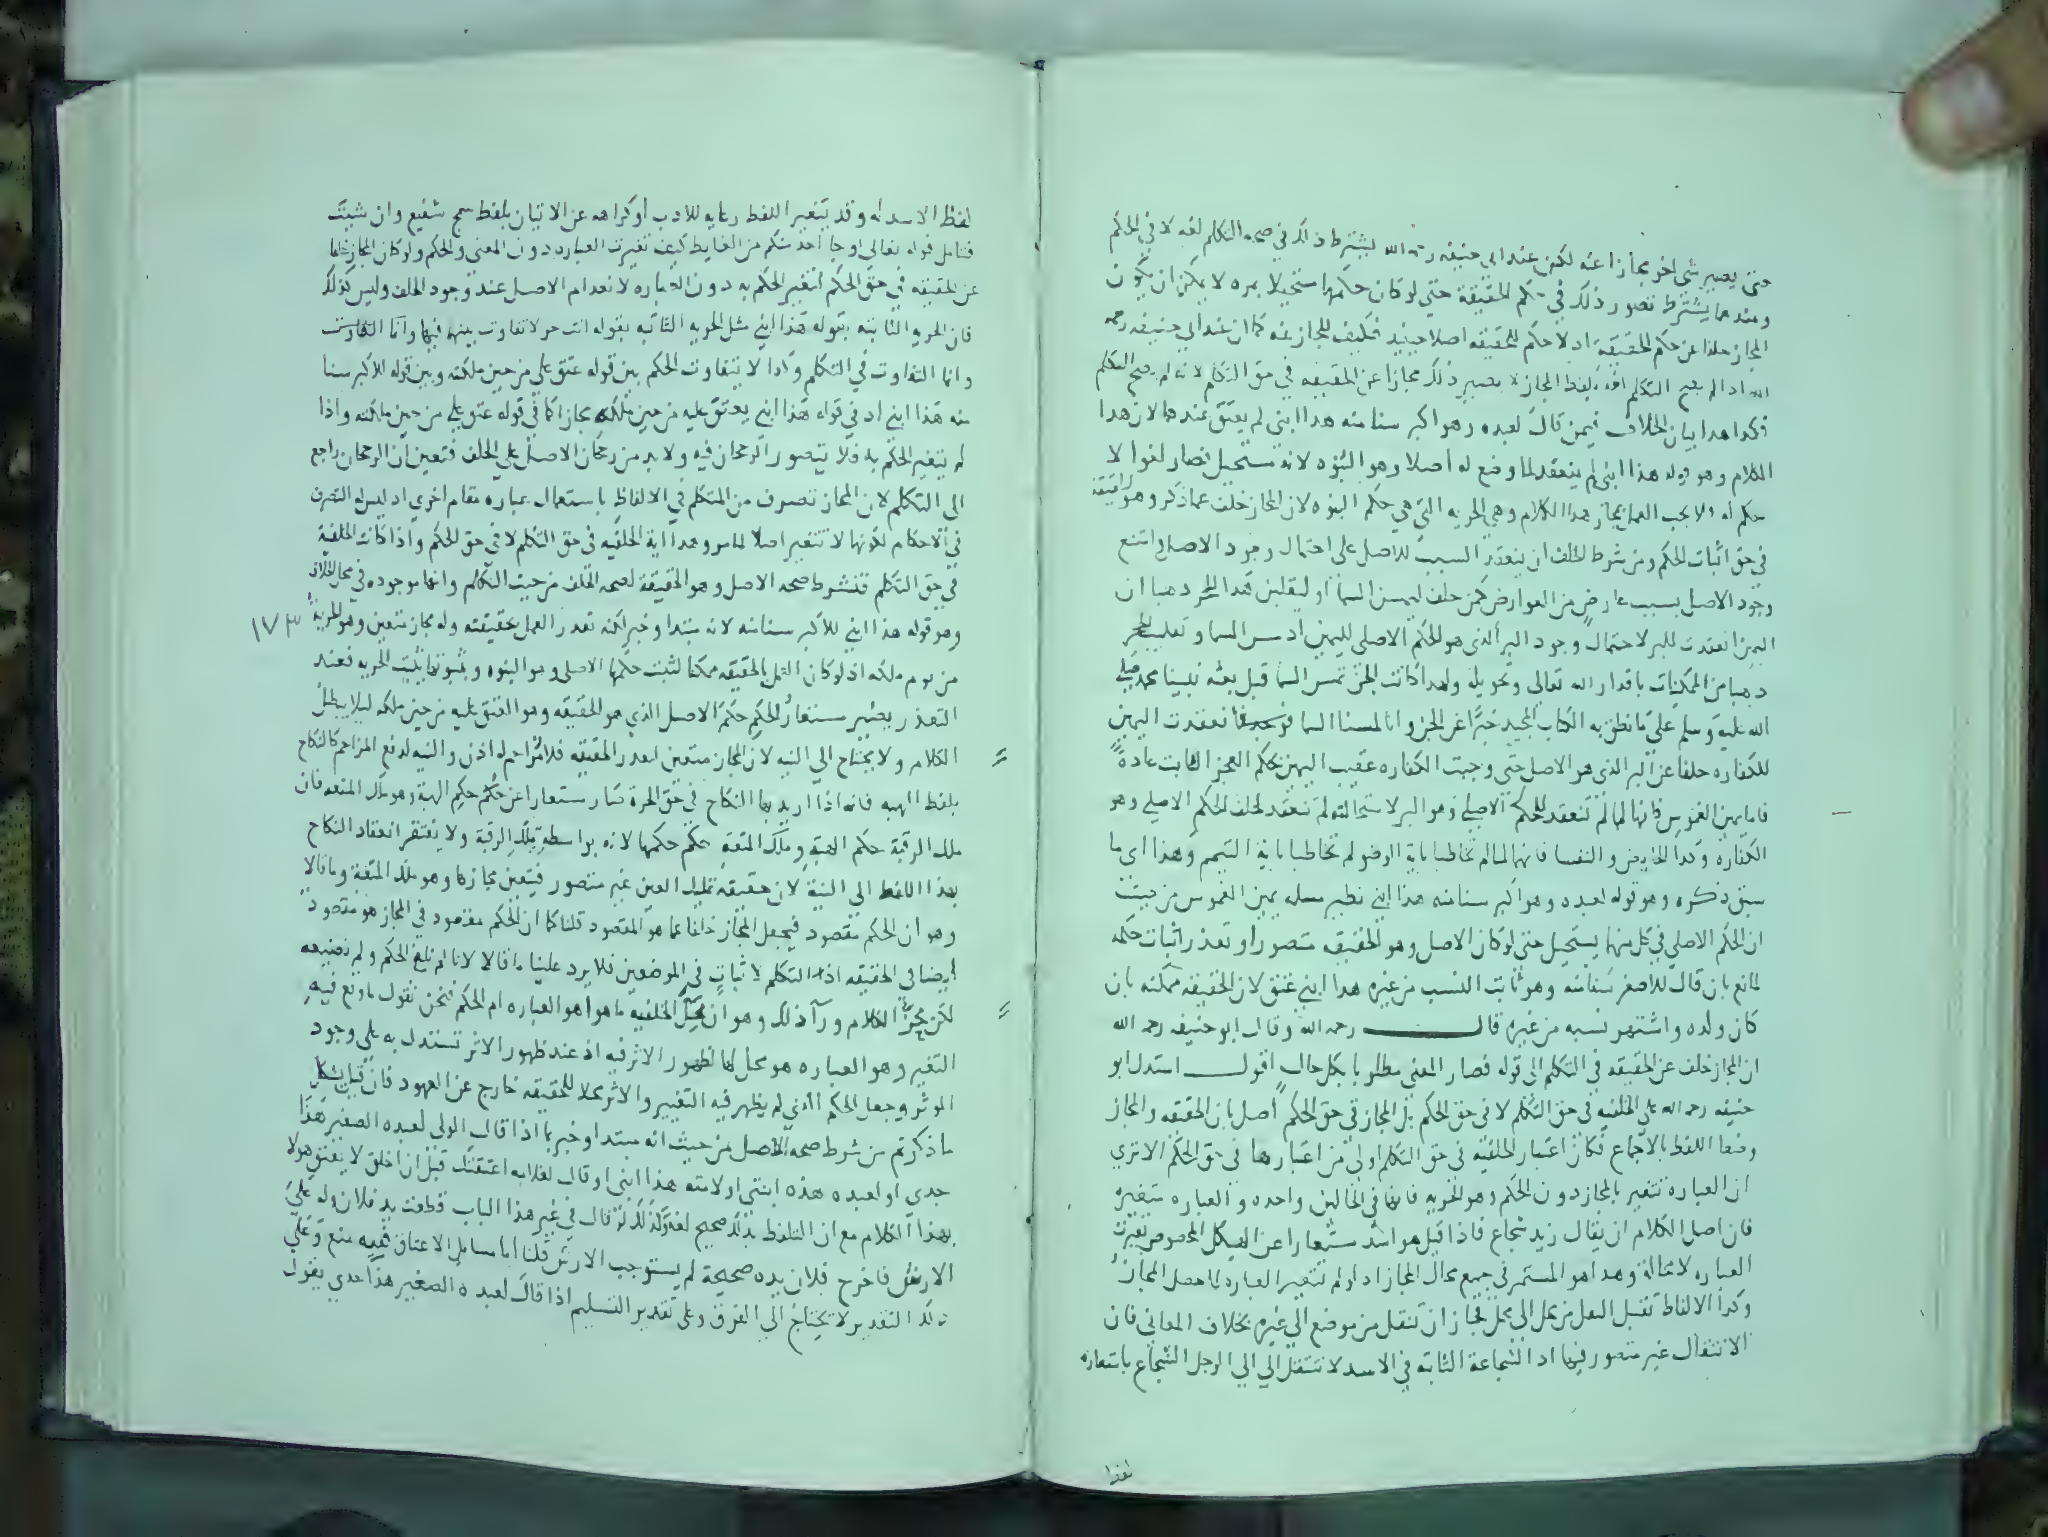 حتى يصير شي اخر مجازا عنه لكن عند ابي حنيفه رحمه الله يشترط ذلك في صحه التكلم لغه لا في الحكم
وعندهما يشترط تصور ذلك في حكم الحقيقة حتى لو كان حكمها مستحيلا بمره لا يمكن ان يكون
المجاز خلفا عن حكم الحقيقة اذ لا حكم للحقيقه اصلا حينيذ فكيف المجاز عنه كما ان عند ابي حنيفه رحمه
الله اذا لم يصح التكلم لغه بلفظ المجاز لا يصير ذلك مجازا عن الحقيقه في حق التكلم لانه لم يصح التكلم
فكذا هذا بيان الخلاف فيمن قال لعبده وهو اكبر سنا منه هذا ابني لم يعتق عندهما لان هذا
الكلام وهو قوله هذا ابني لم ينعقد لما وضع له اصلا وهو البنوه لانه مستحيل فصار لغوا لا
حكم له ولا يجب العمل بمجاز هذا الكلام وهي الحريه التي هي حكم البنوه لان المجاز خلف عما ذكر وهو الحقيقة
في حق اثبات الحكم ومن شرط الخلف ان ينعقد السبب للاصل على احتمال وجود الاصل وامتنع
وجود الاصل بسبب عارض من العوارض كمن حلف ليمسن السما او ليقلبن هذا الحجر ذهبا ان
اليمين انعقدت للبر لاحتمال وجود البر الذي هو الحكم الاصلي لليمين اذ مس السما وتقليب الحجر
ذهبا من الممكنات باقدار الله تعالى وتحويله ولهذا كانت الجن تمس السما قبل بعثه نبينا محمد صلى
الله عليه وسلم على ما نطق به الكتاب المجيد خبرا عن الجن وانا لمسنا السما فوجدناها فانعقدت اليمين
للكفاره خلفا عن البر الذي هو الاصل حتى وجبت الكفاره عقيب اليمين بحكم العجز الثابت عادة
فاما يمين الغموس فانها لما لم تنعقد للحكم الاصلي وهو البر لاستحالته لم تنعقد لخلف الحكم الاصلي وهو
الكفاره وكذا الحايض والنفسا فانهما لما لم تخاطبا باية الوضو لم تخاطبا باية التيمم وهذا اي ما
سبق ذكره وهو قوله لعبده وهو اكبر سنا منه هذا ابني نظير مسله يمين الغموس من حيث
ان الحكم الاصلي في كل منهما يستحيل حتى لو كان الاصل وهو الحقيقه متصورا وتعذر اثبات حكمه
لمانع بان قال للاصغر سنا منه وهو ثابت النسب من غيره هذا ابني عتق لان الحقيقه ممكنه بان
كان ولده واشتهر نسبه من غيره قال رحمه الله وقال ابو حنيفه رحمه الله
ان المجاز خلف عن الحقيقه في التكلم الى قوله فصار المعنى مطلوبا بكل حال اقول استدل ابو
حنيفه رحمه الله على الخلفيه في حق التكلم لا في حق الحكم بل المجاز في حق الحكم اصل بان الحقيقه والمجاز
وصفا اللفظ بالاجماع فكان اعتبار الخلفيه في حق التكلم اولى من اعتبارها في حق الحكم الا ترى
ان العباره تتغير بالمجاز دون الحكم وهو الحريه فانها في الحالين واحده والعباره متغيره
فان اصل الكلام ان يقال زيد شجاع فاذا قيل هو اسد مستعارا عن الهيكل المخصوص تغيرت
العباره لا محالة وهذا هو المستمر في جميع محال المجاز اذ لو لم تتغير العباره لما حصل المجاز
وكذا الالفاظ تقبل النقل من محل الى محل فجاز ان تنقل من موضع الى غيره بخلاف المعاني فان
الانتقال غير متصور فيها اذ الشجاعة الثابته في الاسد لا تنتقل الي الي الرجل الشجاع باستعارة
لفظ
لفظ الاسد له وقد يتغير اللفظ رعايه للادب او كراهه عن الاتيان بلفظ سمج شنيع وان شيت
فتامل قوله تعالى او جا احد منكم من الغايط كيف تغيرت العباره دون المعنى والحكم ولو كان المجاز خلفا
عن الحقيقه في حق الحكم لتغير الحكم به دون العباره لانعدام الاصل عند وجود الخلف وليس كذلك
فان الحريه الثابته بقوله هذا ابني مثل الحريه الثابته بقوله انت حر لا تفاوت بينهما فيها وانما التفاوت
وانما التفاوت في التكلم وكذا لا يتفاوت الحكم بين قوله عتق علي من حين ملكته وبين قوله للاكبر سنا
منه هذا ابني اذ في قوله هذا ابني يعتق عليه من حين ملكه مجازا كما في قوله عتق علي من حين ملكته واذا
لم يتغير الحكم به فلا يتصور الرجحان فيه ولا بد من رجحان الاصل على الخلف فتعين ان الرجحان راجع
الى التكلم لان المجاز تصرف من المتكلم في الالفاظ باستعمال عباره مقام اخرى اذ ليس له التصرف
في الاحكام لكونها لا تتغير اصلا لما مر وهذا اية الخلفيه في حق التكلم لا في حق الحكم واذا كانت الخلفية
في حق التكلم فنشرط صحه الاصل وهو الحقيقة لصحه الخلف من حيث التكلم وانها موجوده في محال الخلاف
وهو قوله هذا ابني للاكبر سنا منه لانه مبتدا وخبر لكنه تعذر العمل بحقيقته وله مجاز متعين وهو الحرية
١٧٣
من يوم ملكه اذ لو كان العمل بالحقيقه ممكنا لثبت حكمها الاصلي وهو البنوه وبثبوتها يثبت الحريه فعند
التعذر يصير مستعارا لحكم حكم الاصل الذي هو الحقيقه وهو العتق عليه من حين ملكه ليلا يبطل
الكلام ولا يحتاج الى النيه لان المجاز متعين لتعذر الحقيقه فلا مزاحم له اذن والنيه لدفع المزاحم كالنكاح
بلفظ الهبه فانه اذا اريد بها النكاح في حق الحرة صار مستعارا عن حكم حكم الهبة وهو ملك المتعه فان
ملك الرقبة حكم الهبة وملك المتعة حكم حكمها لانه بواسطة ملك الرقبة ولا يفتقر انعقاد النكاح
بهذا اللفظ الى النية لان حقيقه تمليك العين غير متصور فيتعين مجازها وهو ملك المتعة وما قالا
وهو ان الحكم مقصود فيجعل المجاز خلفا عما هو المقصود قلنا كما ان الحكم مقصود في المجاز هو مقصود
ايضا في الحقيقه اذا التكلم لاثبات في الموضعين فلا يرد علينا ما قالا لانا لم نلغ الحكم ولم نضيعه
لكن الكلام ورآ ذلك وهو ان محل الخلفيه ما هو اهو العباره ام الحكم فنحن نقول ما وقع فيه
التغير وهو العباره هو محل لها لظهور الاثر فيه اذ عند ظهور الاثر نستدل به على وجود
الموثر وجعل الحكم الذي لم يظهر فيه التغيير والاثر محلا للحقيقه خارج عن المعهود فان قيل يشكل
ما ذكرتم من شرط صحه الاصل من حيث انه مبتدا وخبر بما اذا قال المولى لعبده الصغير هذا
جدي او لعبده هذه ابنتي او لامته هذا ابني او قال لغلامه اعتقتك قبل ان اخلق لا يعتق هولا
بهذا الكلام مع ان التلفظ بذلك صحيح لغة وكذلك لو قال في غير هذا الباب قطعت يد فلان وله علي
الارش فاخرج فلان يده صحيحة لم يستوجب الارش قلنا اما مسايل الاعتاق ففيه منع وعلى
ذلك التقدير لا يحتاج الى الفرق وعلى تقدير التسليم اذا قال لعبده الصغير هذا جدي يقول